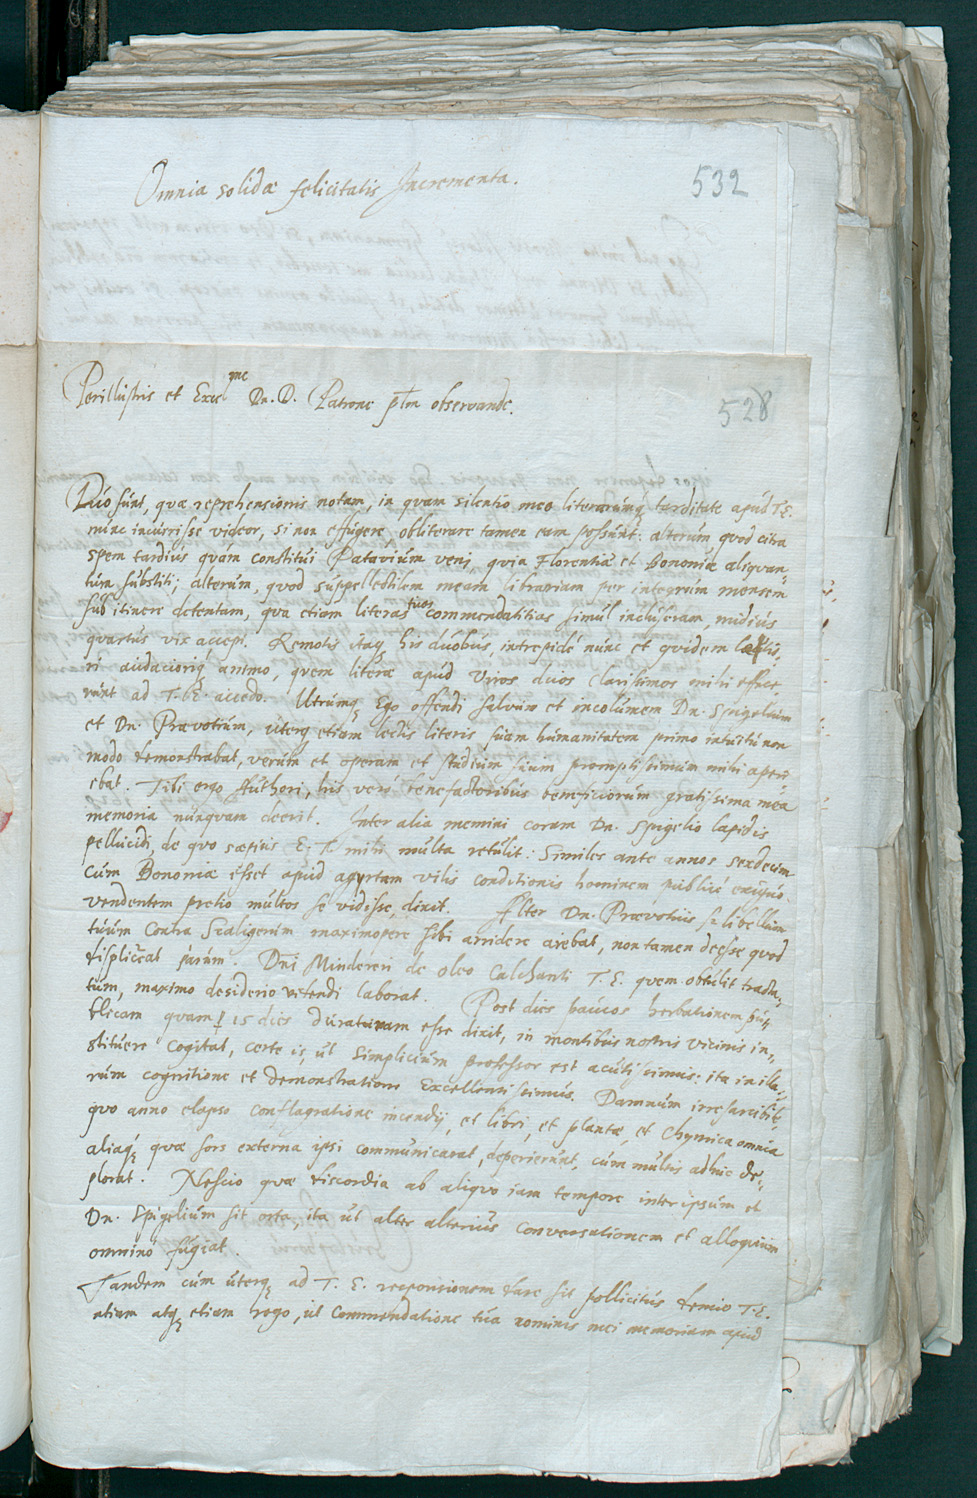 Omnia solidæ felicitatis Incrementa.
532
Perillustris et Excel.me Dn. D. Patrone p̃lm observande.
528
Duo sunt, quæ reprehensionis notam, in quam silentio meo literarumq; tarditate apud T.E.
nunc incurrisse videor, si non effugere, obliterare tamen eam possunt: alterum quod citra
spem tardius quam constitui Patavium veni, quia Florentiæ et Bononiæ aliquan-
tum substiti; alterum, quod suppellectilem meam librariam per integrum mensem
sub itinere detentam, qua etiam literas tuas commendatitias simul incluseram, nudius
quartus vix accepi. Remotis itaq; his duobus, intrepidè nunc et quidem
ri audacioriq; animo, quem literæ apud Viros duos Clarissimos mihi effece-
runt ad T.E. accedo. Utrumq; Ego offendi salvum et incolumem Dn. Spigelium
et Dn. Prævotium, uterq; etiam lectis literis suam humanitatem primo intuitu non
modo demonstrabat, verùm et operam et studium suum promptissimum mihi aperi-
ebat. Tibi ergo Autheri, his verò benefactoribus beneficiorum gratissima mea
memoria nunquam deerit. Inter alia memini coram Dn. Spigelio lapidis
pellucidi, de quo sæpius E. T. mihi multa retulit: Similes ante annos sexdecim
cum Bononiæ esset apud agyrtam vilis conditionis hominem publicè exiguo
vendentem pretio multos se vidisse, dixit. Alter Dn. Prævotius libellum
tuum Contra Scaligerum maximopere sibi arridere aiebat, non tamen deesse quod
displiceat parum. Dni Mindereri de oleo Calchanti T.E. quem obtulit tracta-
tum, maximo desiderio videndi laborat. Post dies paucos herbationem pu-
blicam quam 15 dies duraturam esse dixit, in montibus nostris vicinis in-
stituere cogitat, certe is, ut simplicium professor est acutissimus: ita in illa-
rum cognitione et demonstratione Excellentissimus. Damnum irresarcibile
quo anno elapso conflagratione incendij, et libri, et plantæ, et Chymica omnia
aliaq; quæ sors externa ipsi communicarat, deperierunt, cum multis adhuc de-
plorat. Nescio quæ discordia ab aliquo iam tempore inter ipsum et
Dn. Spigelium sit orta, ita ut alter alterius conversationem et alloquium
omninò fugiat.
Tandem cum uterq; ad T. E. responsionem dare sit pollicitus demio T.E.
etiam atq; etiam rogo, ut commendatione tua nominis mei memoriam apud